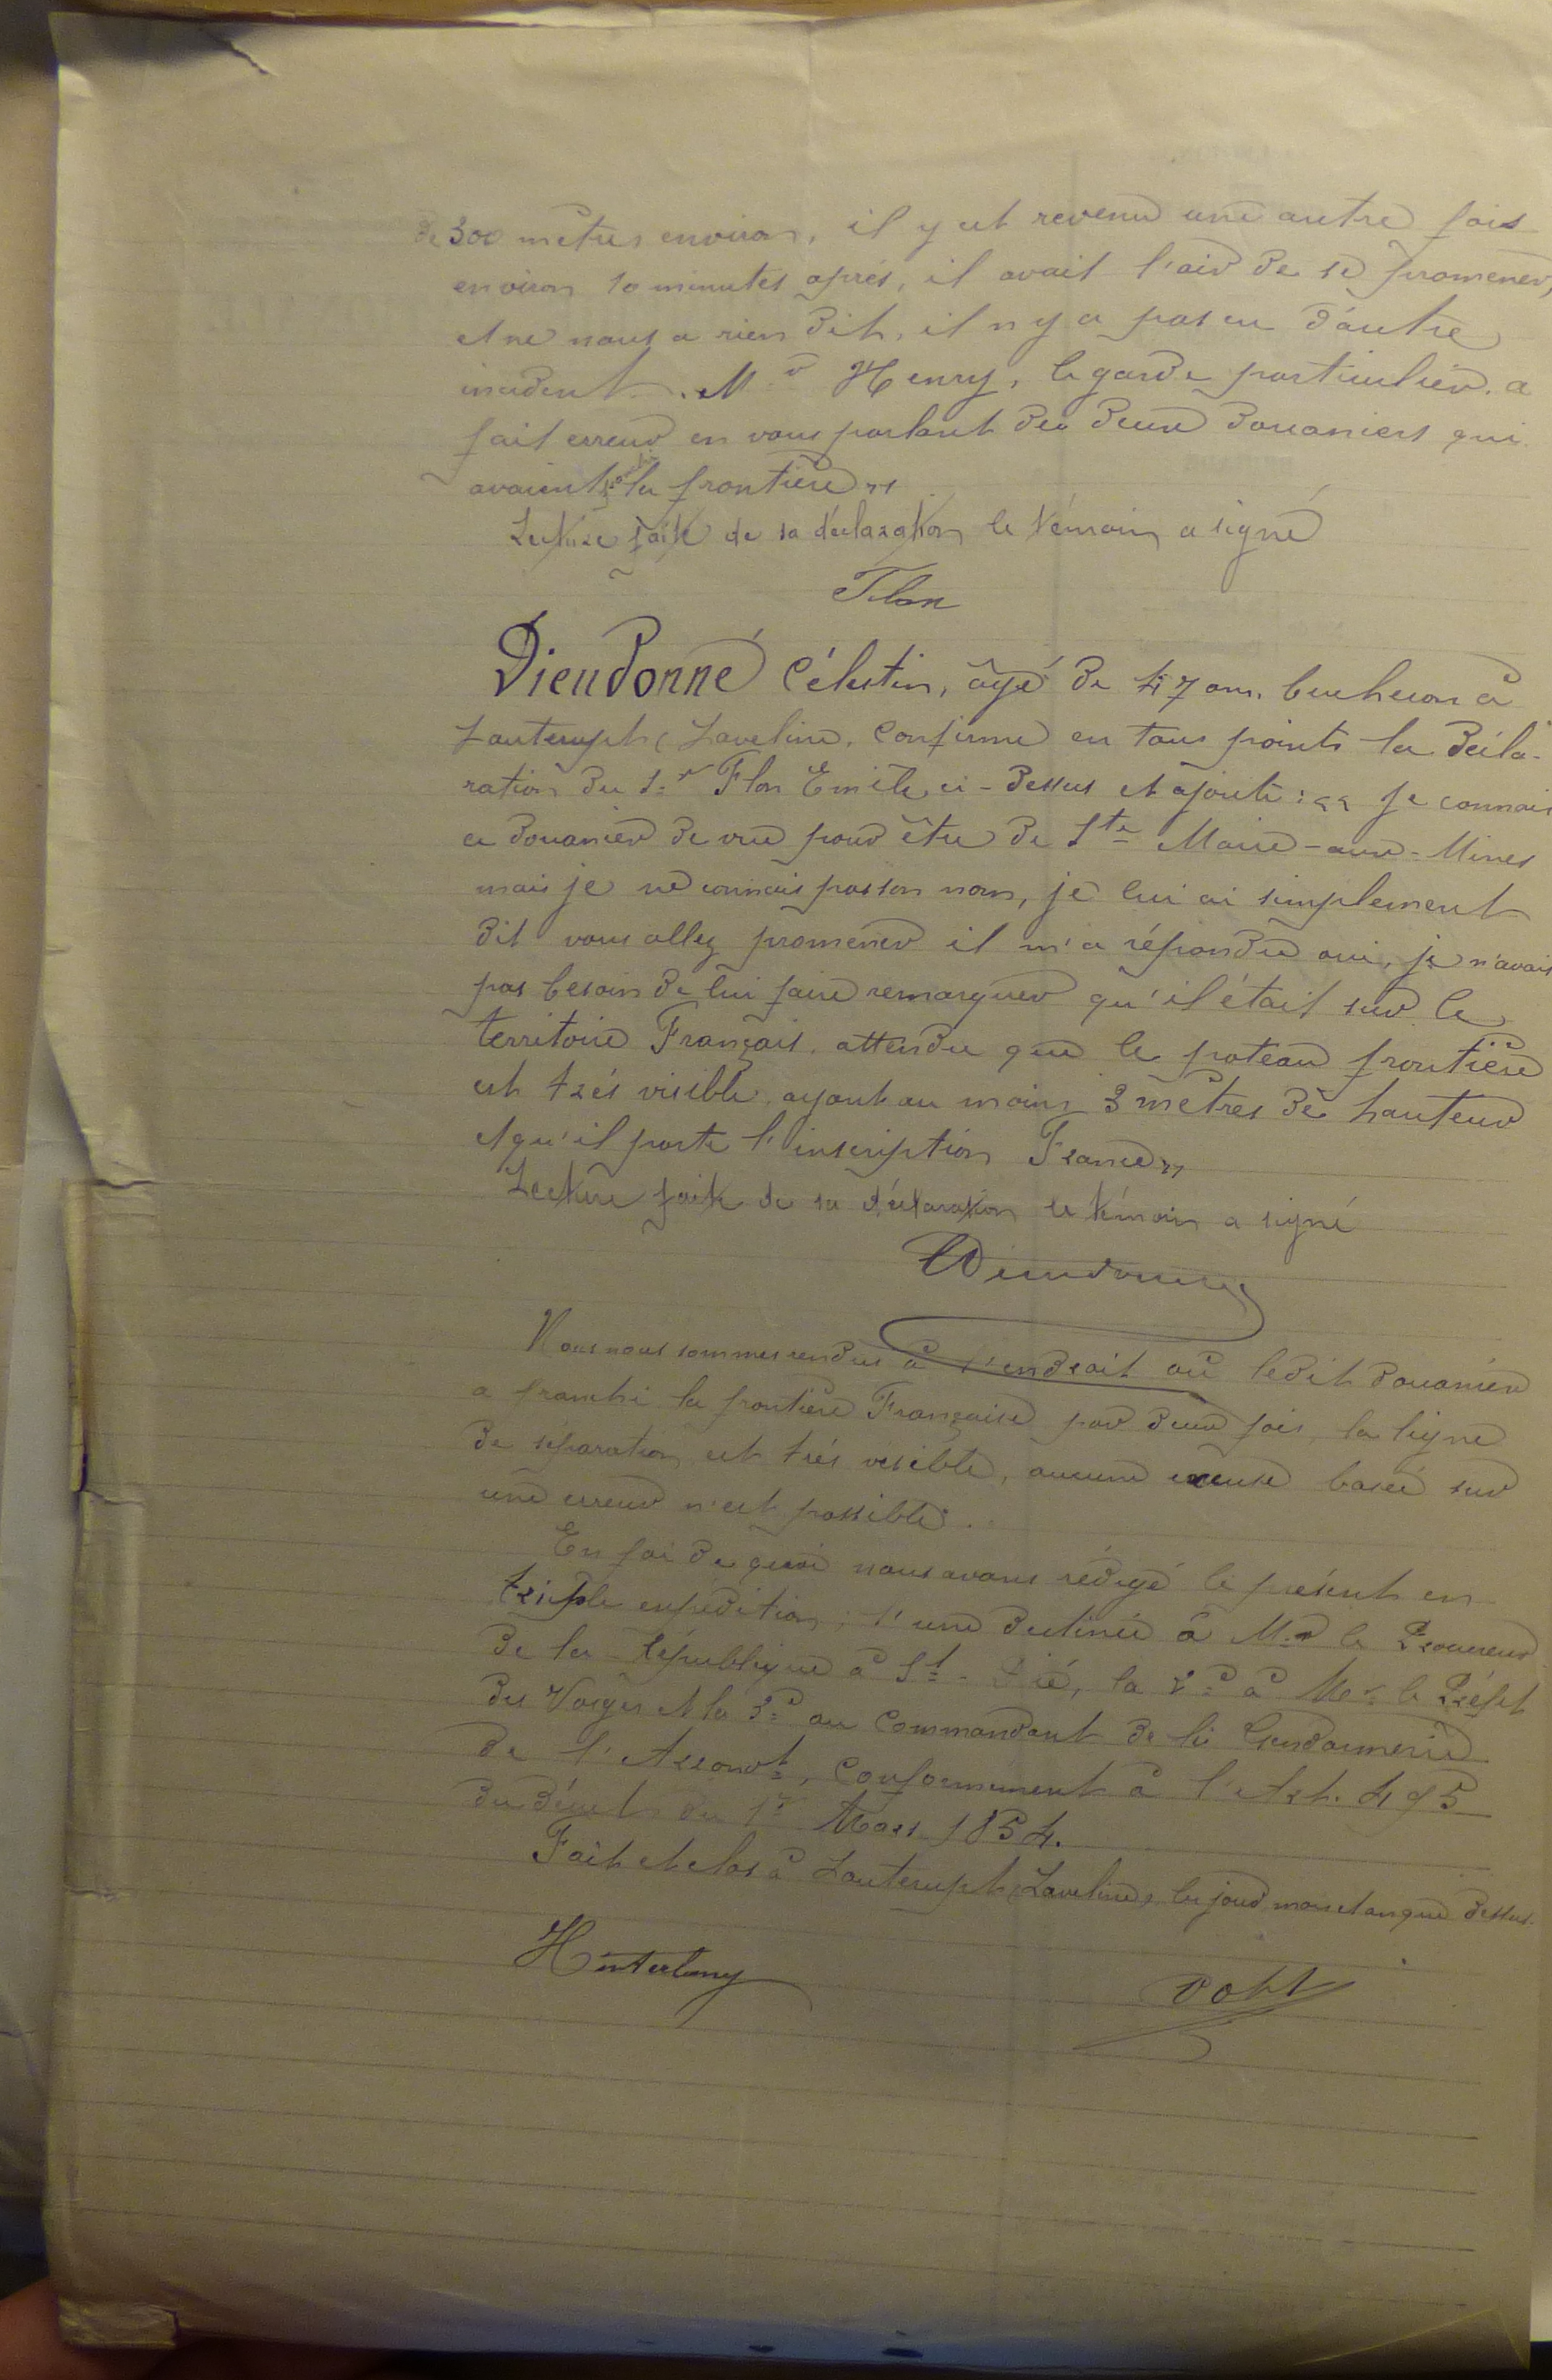 de 300 mètres environ, il y est revenu une autre fois
environ 10 minutes après, il avait l'air de se promener,
et ne nous a rien dit, il n'y a pas eu d'autre
incident. Mr Henry, le garde particulier, a
fait erreur en vous parlant des deux douaniers qui
avaient la frontière »
Lecture faite de sa déclaration le témoin a signé
Flon
Dieudonné Célestin, âgé de 47 ans, bucheron à
Lauterupt (Laveline, confirme en tous points la décla-
ration du Sr Flon Emile ci-dessus et ajoute : « Je connais
ce douanier de vue pour être de Ste Marie-aux-Mines
mais je ne connais pas son nom, je lui ai simplement
dit vous allez promener il m'a répondu oui, je n'avais
pas besoin de lui faire remarquer qu'il était sur le
territoire Français, attendu que le poteau frontière
est très visible, ayant au moins 3 mètres de hauteur
et qu'il porte l'inscription France »
Lecture faite de sa déclaration le témoin a signé
Dieudonné
Nous nous sommes rendus à l'endroit où ledit douanier
a franchi la frontière Française par deux fois, la ligne
de séparation est très visible, aucune excuse basée sur
une erreur n'est possible.
En foi de quoi nous avons rédigé le présent en
triple expédition, l'une destinée à Mr le Procureur
de la République à St-Dié, la 2e à Mr le Préfet
des Vosges et la 3e au Commandant de la Gendarmerie
de l'Arrondt, conformément à l'Art. 495
du décret du 1er Mars 1854.
Fait et clos à Lauterupt (Laveline) les jour, mois et an que dessus.